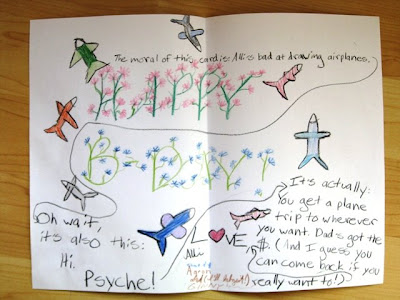 The moral of this card is: Alli is bad at drawing airplanes.
HAPPY
B-DAY!
Oh wait,
it's also this:
Hi.
Psyche!
It's actually:
You get a plane
trip to wherever
you want. Dad's got the
$$. (And I guess you
can come back if you
really want to!)
LOVE
Alli